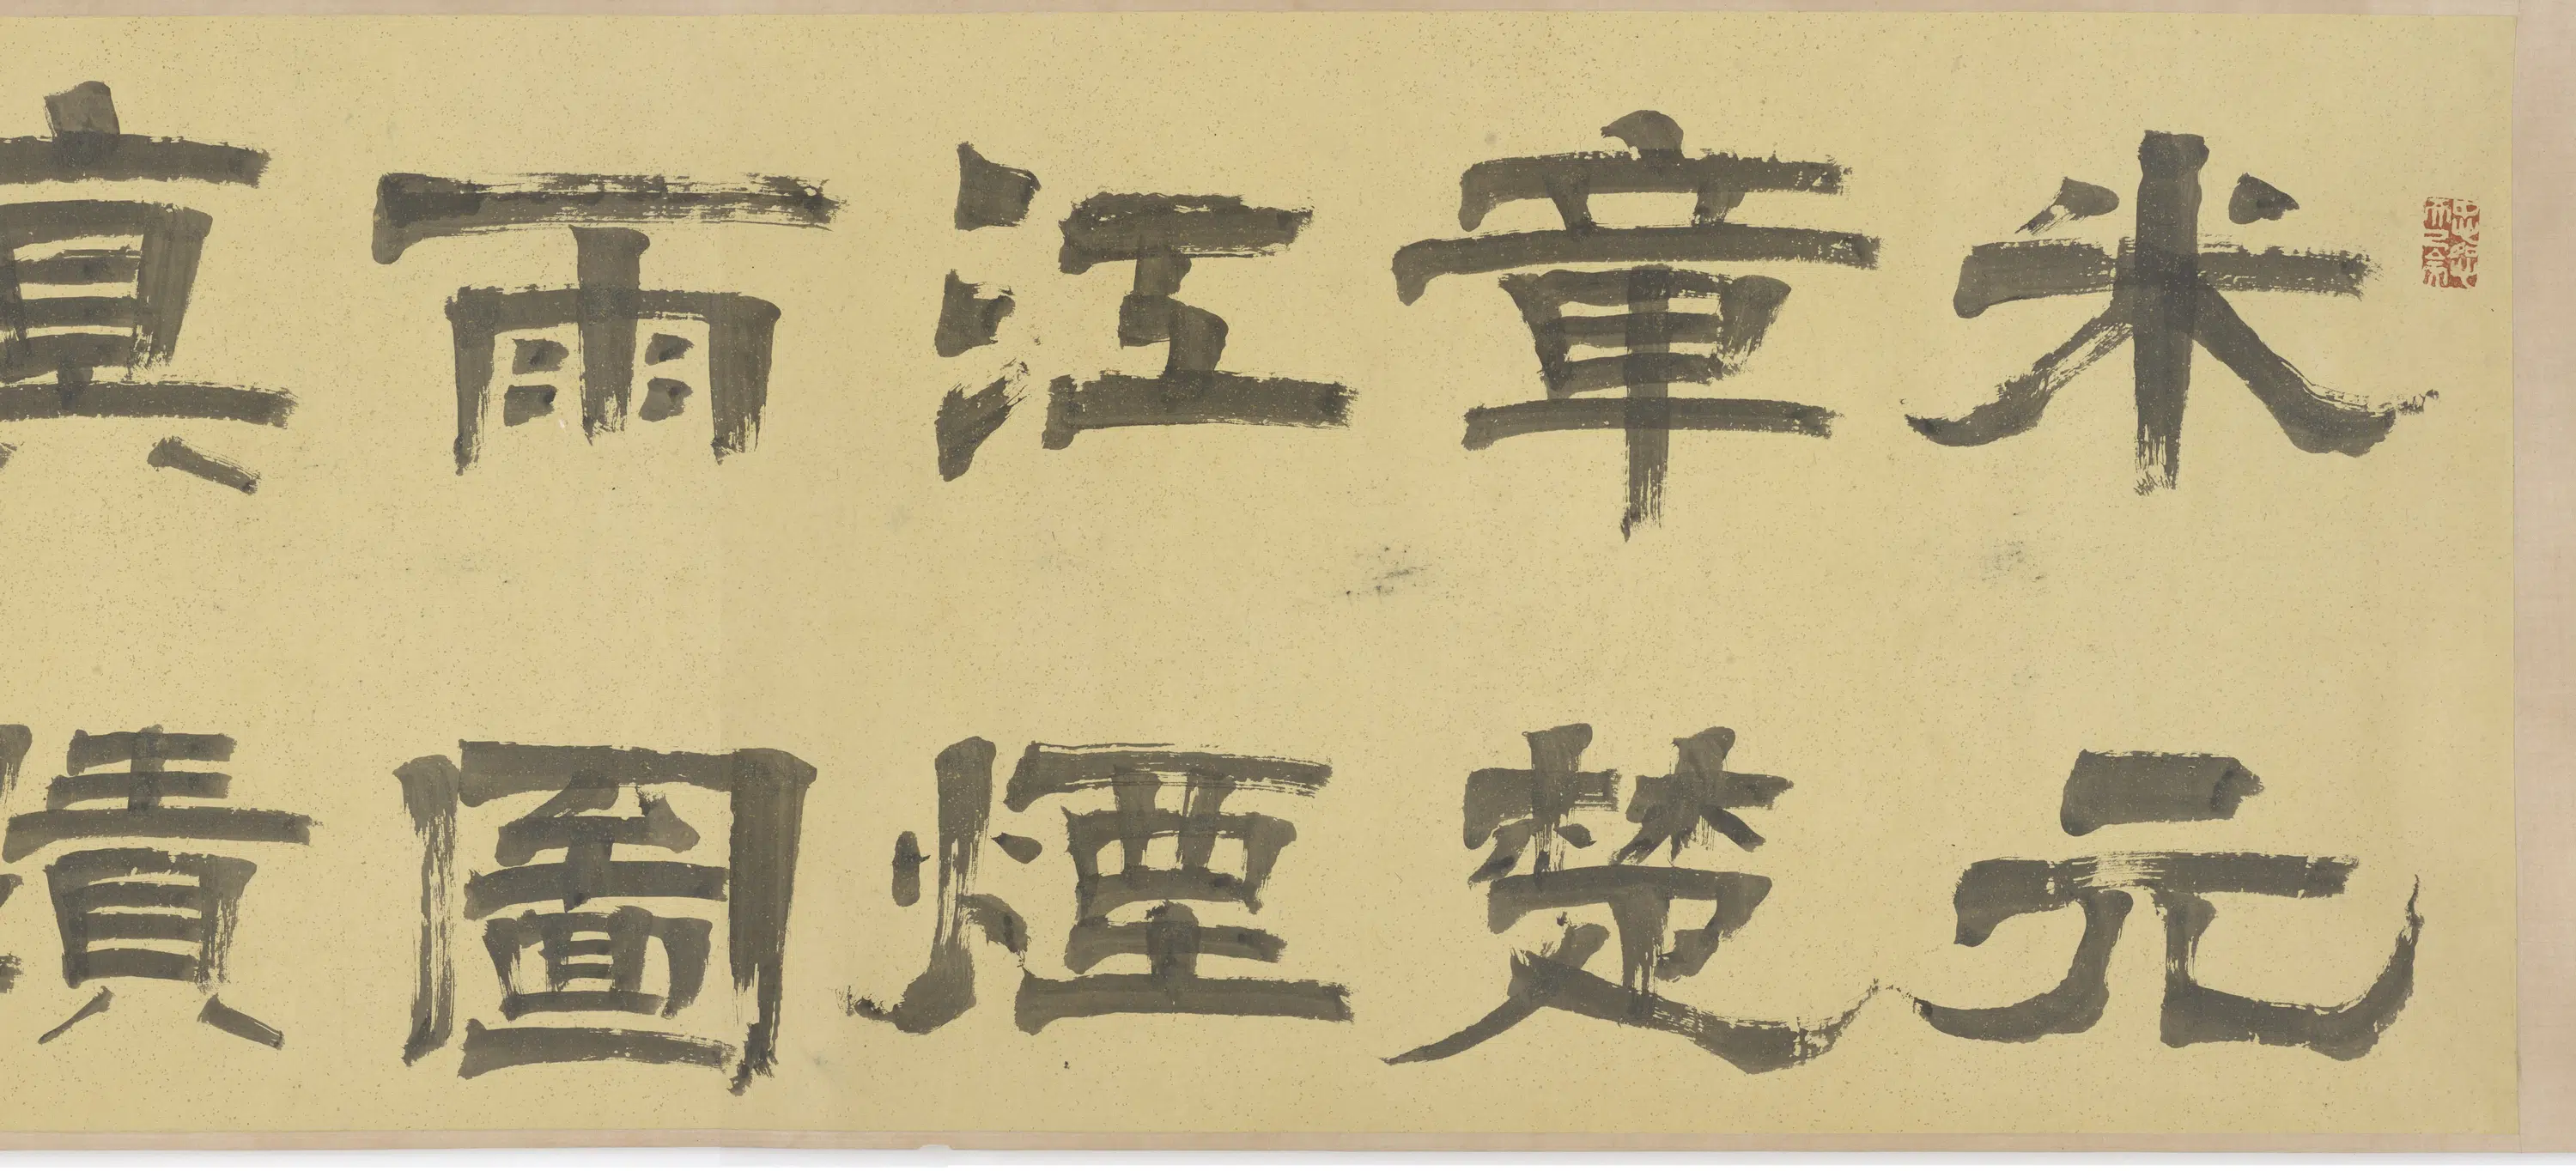 米元
章楚
江煙
雨圖
真蹟